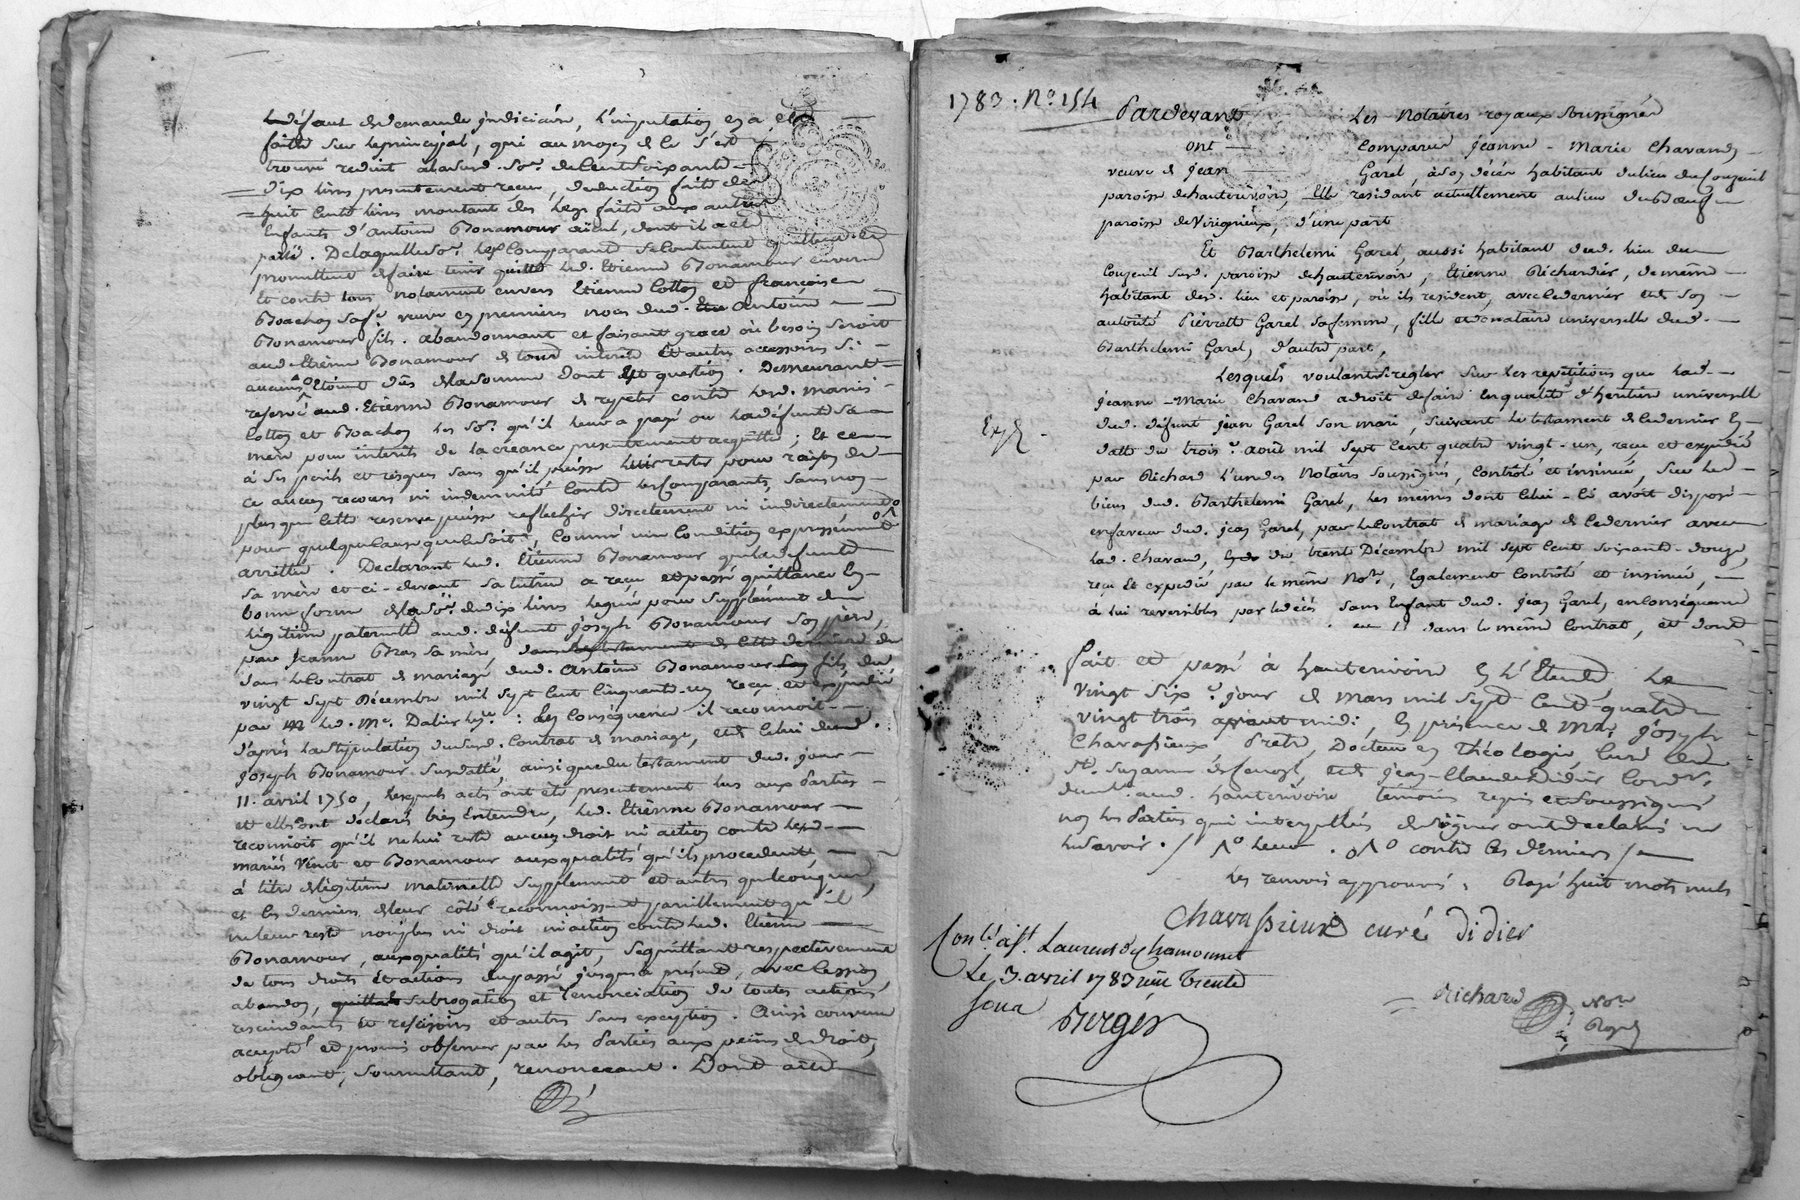 défaut de demande judiciaire, l'imputation en a été
faite sur le principal, qui au moyen de ce s'est
trouvé reduit à la susd. so.e de cent soixante
dix livres presentement reçue, deduction faite des
huit cents livres montant des legs faits aux autres
enfants d'Antoine Bonamour aieul, dont il a été
parlé. De laquelle so.e les Comparants se contentent quittent et
promettent de faire tenir quitte led. Etienne Bonamour envers
et contre tous notament envers Etienne Cottoy et françoise
Boachon sa fe. veuve en premieres noces dud. Antoine
Bonamour fils. abandonnant et faisant grace où besoin seroit
aud. Etienne Bonamour de tous interets et autres accessoires si
aucuns etoient dûs de la somme dont est question. Demeurant
reservé aud. Etienne Bonamour de repeter contre lesd. mariés
Cottoy et Boachon les so.es qu'il leur a payé ou la défunte sa
mère pour interets de la créance presentement acquittée; et ce
à ses perils et risques sans qu'il puisse pour raison de
ce aucun recours ni indemnité contre les Comparants, sans non
plus que cette reserve puisse reflechir directement ni indirectement
pour quelque cause que ce soit, comme une condition expressément
arrettée. Declarant led. Etienne Bonamour que la defunte
sa mère et ci-devant sa tutrice a reçu et passé quittance en
bonne forme de la so.e de dix livres leguée pour supplément de
légitime paternelle aud. défunt Joseph Bonamour son père,
par Jeanne Bras sa mère, dans le testament de cette derniere du
dans le Contrat de mariage dud. Antoine Bonamour fils du
vingt sept Décembre mil sept cent cinquante un reçu et expedié
par led. Me. Dalier : En conséquence il reconnoit
d'après la stipulation dud. Contrat de mariage, et de celui dud.
Joseph Bonamour susdatté, ainsi que du testament dud. jour
11. avril 1750, lesquels acts ont été presentement lus aux Parties
et elles ont déclaré bien entendre, led. Etienne Bonamour
reconnoit qu'il ne lui reste aucun droit ni action contre lesd.
mariés Vincet et Bonamour aux qualités qu'ils procedent,
à titre de légitime maternelle supplement et autres quelconques,
et les derniers de leur côté reconnoissent pareillement qu'il
ne leur reste non plus ni droit ni action contre led. Etienne
Bonamour, aux qualités qu'il agit, se quittant respectivement
de tous droits et actions du passé jusques à présent, avec cession,
abandon, subrogation et renonciation de toutes actions
rescindants et rescisoires et autres sans exception. Ainsi convenu
accepté et promis observer par les Parties aux peines de droit,
obligeant, soumettant, renonceant. Dont acte
1783. No. 154
Pardevant Les Notaires royaux Soussignés
ont comparu Jeanne-Marie Chavand
veuve de Jean Garel, à son décès habitant du lieu du Couzeuil
paroisse de hauterivoire, Elle residant actuellement au lieu du Bœuf
paroisse de Virignieux, d'une part
Et Barthelemi Garel, aussi habitant dud. lieu du
Couzeuil sud. paroisse de hauterivoire, Etienne Richardier, de même
habitant des. lieu et paroisse, où ils resident, avec le dernier et de son
autorité Pierrette Garel sa femme, fille et donataire universelle dud.
Barthelemi Garel, d'autre part,
Lesquels voulant se regler sur les repetitions que lad.
Jeanne-Marie Chavand a droit de faire en qualité d'heritiere universelle
dud. défunt jean Garel son mari, suivant le testament de ce dernier en
datte du trois.e août mil sept cent quatre vingt-un, reçu et expedié
par Richard l'un des Notaires soussignés, controlé et insinué, sur les
biens dud. Barthelemi Garel, les memes dont celui-ci avoit disposé
en faveur dud. jean Garel, par le Contrat de mariage de ce dernier avec
lad. Chavand, du trente Décembre mil sept cent soixante-douze,
reçu et expedié par le même No.re, également controlé et insinué,
à lui reversibles par le décès sans enfant dud. Jean Garel, en conséquence
dans le même Contrat, et dont
Exp.
fait et passé à hauterivoire en l'Etude, Le
vingt six.e jour de mars mil sept Cent quatre
vingt trois avant midi, en présence de Mre. Joseph
Chavassieux Prêtre, Docteur en Théologie, Curé de
St. Suzanne et de jean-Claude Didier
aud. hauterivoire témoins requis et soussignés
non les Parties qui interpellées de signer ont declaré ne
le savoir. / contre les derniers /
Les renvois approuvés, Rayé huit mots nuls
Chavassieux curé Didier
Con.lé à St. Laurent de Chamousset
Le 3. avril 1783 reçu trente
sous
Berger
Richard No.re
Royal